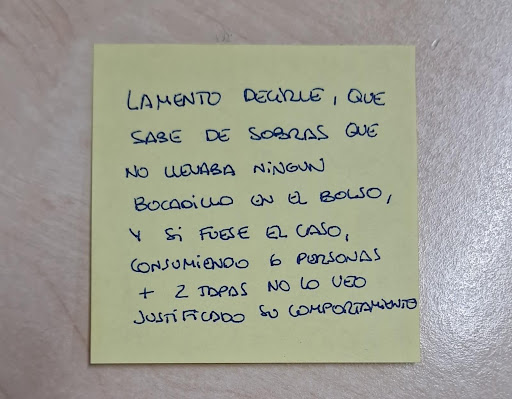 LAMENTO DECIRLE, QUE
SABE DE SOBRAS QUE
NO LLEVABA NINGUN
BOCADILLO EN EL BOLSO,
Y SI FUESE EL CASO,
CONSUMIENDO 6 PERSONAS
+ 2 TAPAS NO LO VEO
JUSTIFICADO SU COMPORTAMIENTO